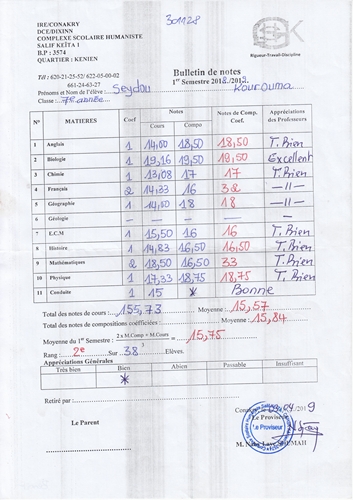 IRE/CONAKRY
DCE/DIXINN
COMPLEXE SCOLAIRE HUMANISTE
SALIF KEÏTA 1
B.P : 3574
QUARTIER : KENIEN
301128
SK
Rigueur-Travail-Discipline
Tél : 620-21-25-52/ 622-05-00-02
661-24-63-27
Bulletin de notes
1er Semestre 2018/2019
Prénoms et Nom de l'élève : Seydou Kourouma
Classe : 7ème année
N° MATIERES Coef Notes Notes de Comp. Coef. Appréciations des Professeurs
Cours Compo
1 Anglais 1 14,00 18,50 18,50 T. Bien
2 Biologie 1 19,16 19,50 19,50 Excellent
3 Chimie 1 13,08 17 17 T. Bien
4 Français 2 14,33 16 32 —//—
5 Géographie 1 14,50 18 18 —//—
6 Géologie — — — — —
7 E.C.M 1 15,50 16 16 T. Bien
8 Histoire 1 14,83 16,50 16,50 T. Bien
9 Mathématiques 2 18,50 16,50 33 T. Bien
10 Physique 1 17,33 18,75 18,75 T. Bien
11 Conduite 1 15 * Bonne
Total des notes de cours : 155,73 Moyenne : 15,57
Total des notes de compositions coéfficiées : Moyenne : 15,84
Moyenne du 1er Semestre : 2 x M.Comp + M.Cours = 15,75
3
Rang : 2e Sur 38 Elèves.
Appréciations Générales
Très bien Bien Abien Passable Insuffisant
*
Retiré par :
Le Parent
Le Proviseur
Le Proviseur